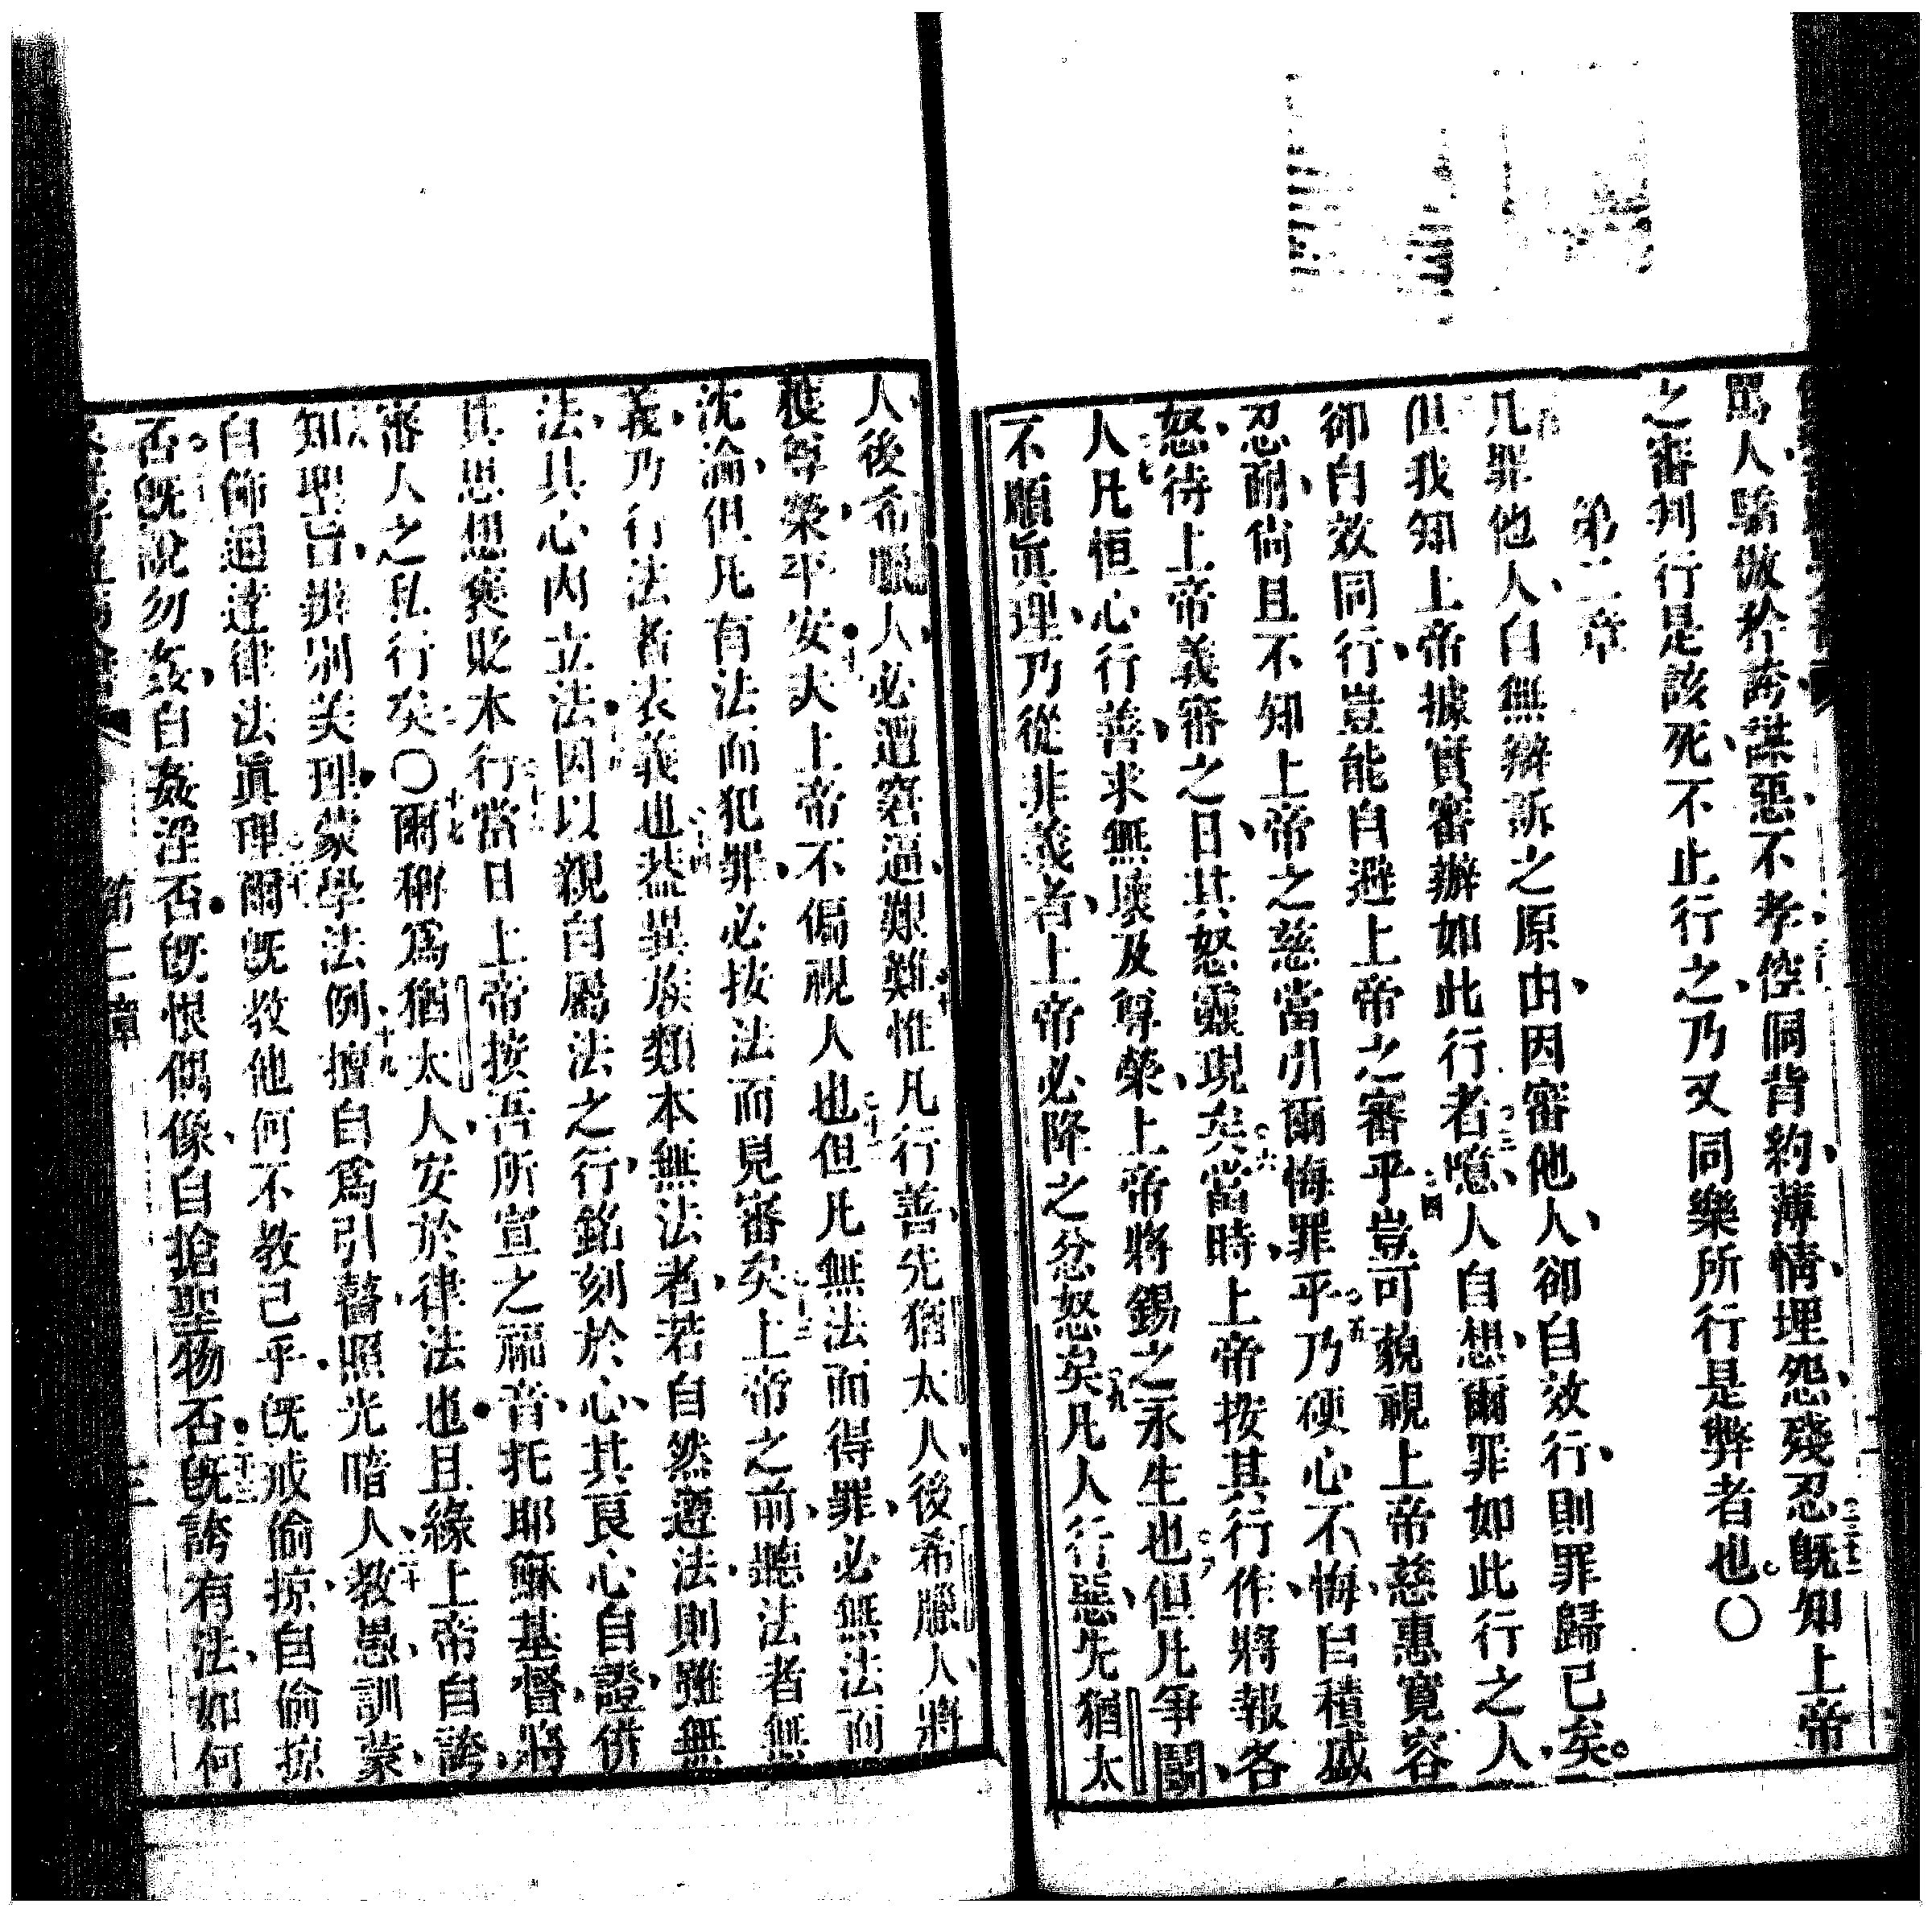 罵人、驕傲矜誇、謀惡、不孝、倥侗背約、薄情、埋怨、殘忍。三十二既知上帝
之審判、行是該死、不止行之、乃又同樂所行是弊者也。〇
第二章
凡罪他人、自無辯訴之原由、因審他人、卻自效行、則罪歸已矣。
但我知上帝據實審辦如此行者。三噫、人自想、爾罪如此行之人、
卻自效同行、豈能自避上帝之審乎。四豈可藐視上帝慈惠寬容
忍耐、尚且不知上帝之慈、當引爾悔罪乎。五乃硬心不悔、自積盛
怒、待上帝義審之日、其怒靈現矣。六當時、上帝按其行作、將報各
人。七凡恒心行善、求無壞及尊榮、上帝將錫之永生也。八但凡爭鬬、
不順眞理、乃從非義者、上帝必降之忿怒矣。九凡人行惡、先猶太
人、後希臘人、必遭窘逼艱難。十惟凡行善、先猶太人、後希臘人、將
獲尊榮平安。十一夫上帝不偏視人也。十二但凡無法而得罪、必無法而
沈淪、但凡有法而犯罪、必按法而見審矣。十三上帝之前、聽法者無
義、乃行法者表義也。十四葢異族類本無法者、若自然遵法、則雖無
法、其心內立法。十五因以親自屬法之行、銘刻於心、其良心自證、併
其思想褒貶本行。十六當日上帝按吾所宣之福音、托耶穌基督、將
審人之私行矣。〇十七爾稱爲猶太人、安於律法也、且緣上帝自誇、
知聖旨、辨別美理、蒙學法例。十九擅自爲引瞽、照光暗人、二十教愚、訓蒙、
自飾通達律法眞理。二十一爾既教他、何不教己乎。既戒偷掠、自偷掠
否。既說勿姦、自姦淫否。既恨偶像、自搶聖物否。二十三既誇有法、如何
第二章
三